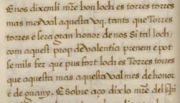 Enos dixemli mes bon loch es torres torres
mas mes val aquesta uos tants que Torres
torres e sera gran honor de nos Si tal loch
com aquest prop de valentia prenem e pot
se mils fer que pus fort loch es Torres torres
que aquesta mas aquesta val mes de honor
e de guany. E sobre aço dix lo